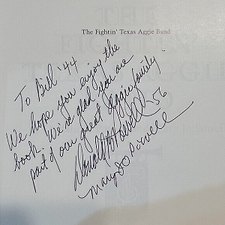 The Fightin' Texas Aggie Band
To Bill '44
We hope you enjoy the
book. We're glad you are
part of our great Aggie family"
Powell '56
Mary Jo Powell